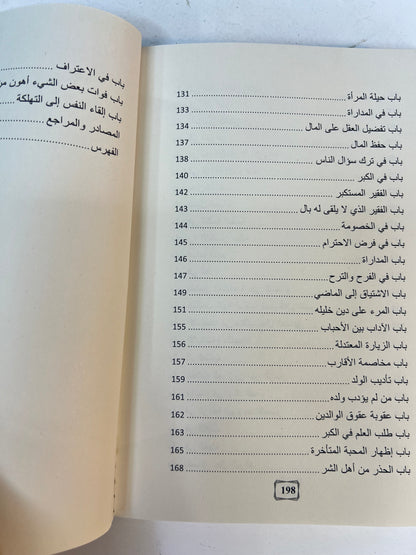 باب حيلة المرأة ........ 131
باب في المداراة ........ 133
باب تفضيل العقل على المال ........ 134
باب حفظ المال ........ 137
باب في ترك سؤال الناس ........ 138
باب في الكبر ........ 140
باب الفقير المستكبر ........ 142
باب الفقير الذي لا يلقى له بال ........ 143
باب في الخصومة ........ 144
باب في فرض الاحترام ........ 145
باب المداراة ........ 146
باب في الفرح والترح ........ 147
باب الاشتياق إلى الماضي ........ 149
باب المرء على دين خليله ........ 151
باب الآداب بين الأحباب ........ 155
باب الزيارة المعتدلة ........ 156
باب مخاصمة الأقارب ........ 157
باب تأديب الولد ........ 159
باب من لم يؤدب ولده ........ 161
باب عقوبة عقوق الوالدين ........ 162
باب طلب العلم في الكبر ........ 163
باب إظهار المحبة المتأخرة ........ 165
باب الحذر من أهل الشر ........ 168
198
باب في الاعتراف ........
باب فوات بعض الشيء أهون من
باب إلقاء النفس إلى التهلكة ........
المصادر والمراجع ........
الفهرس ........